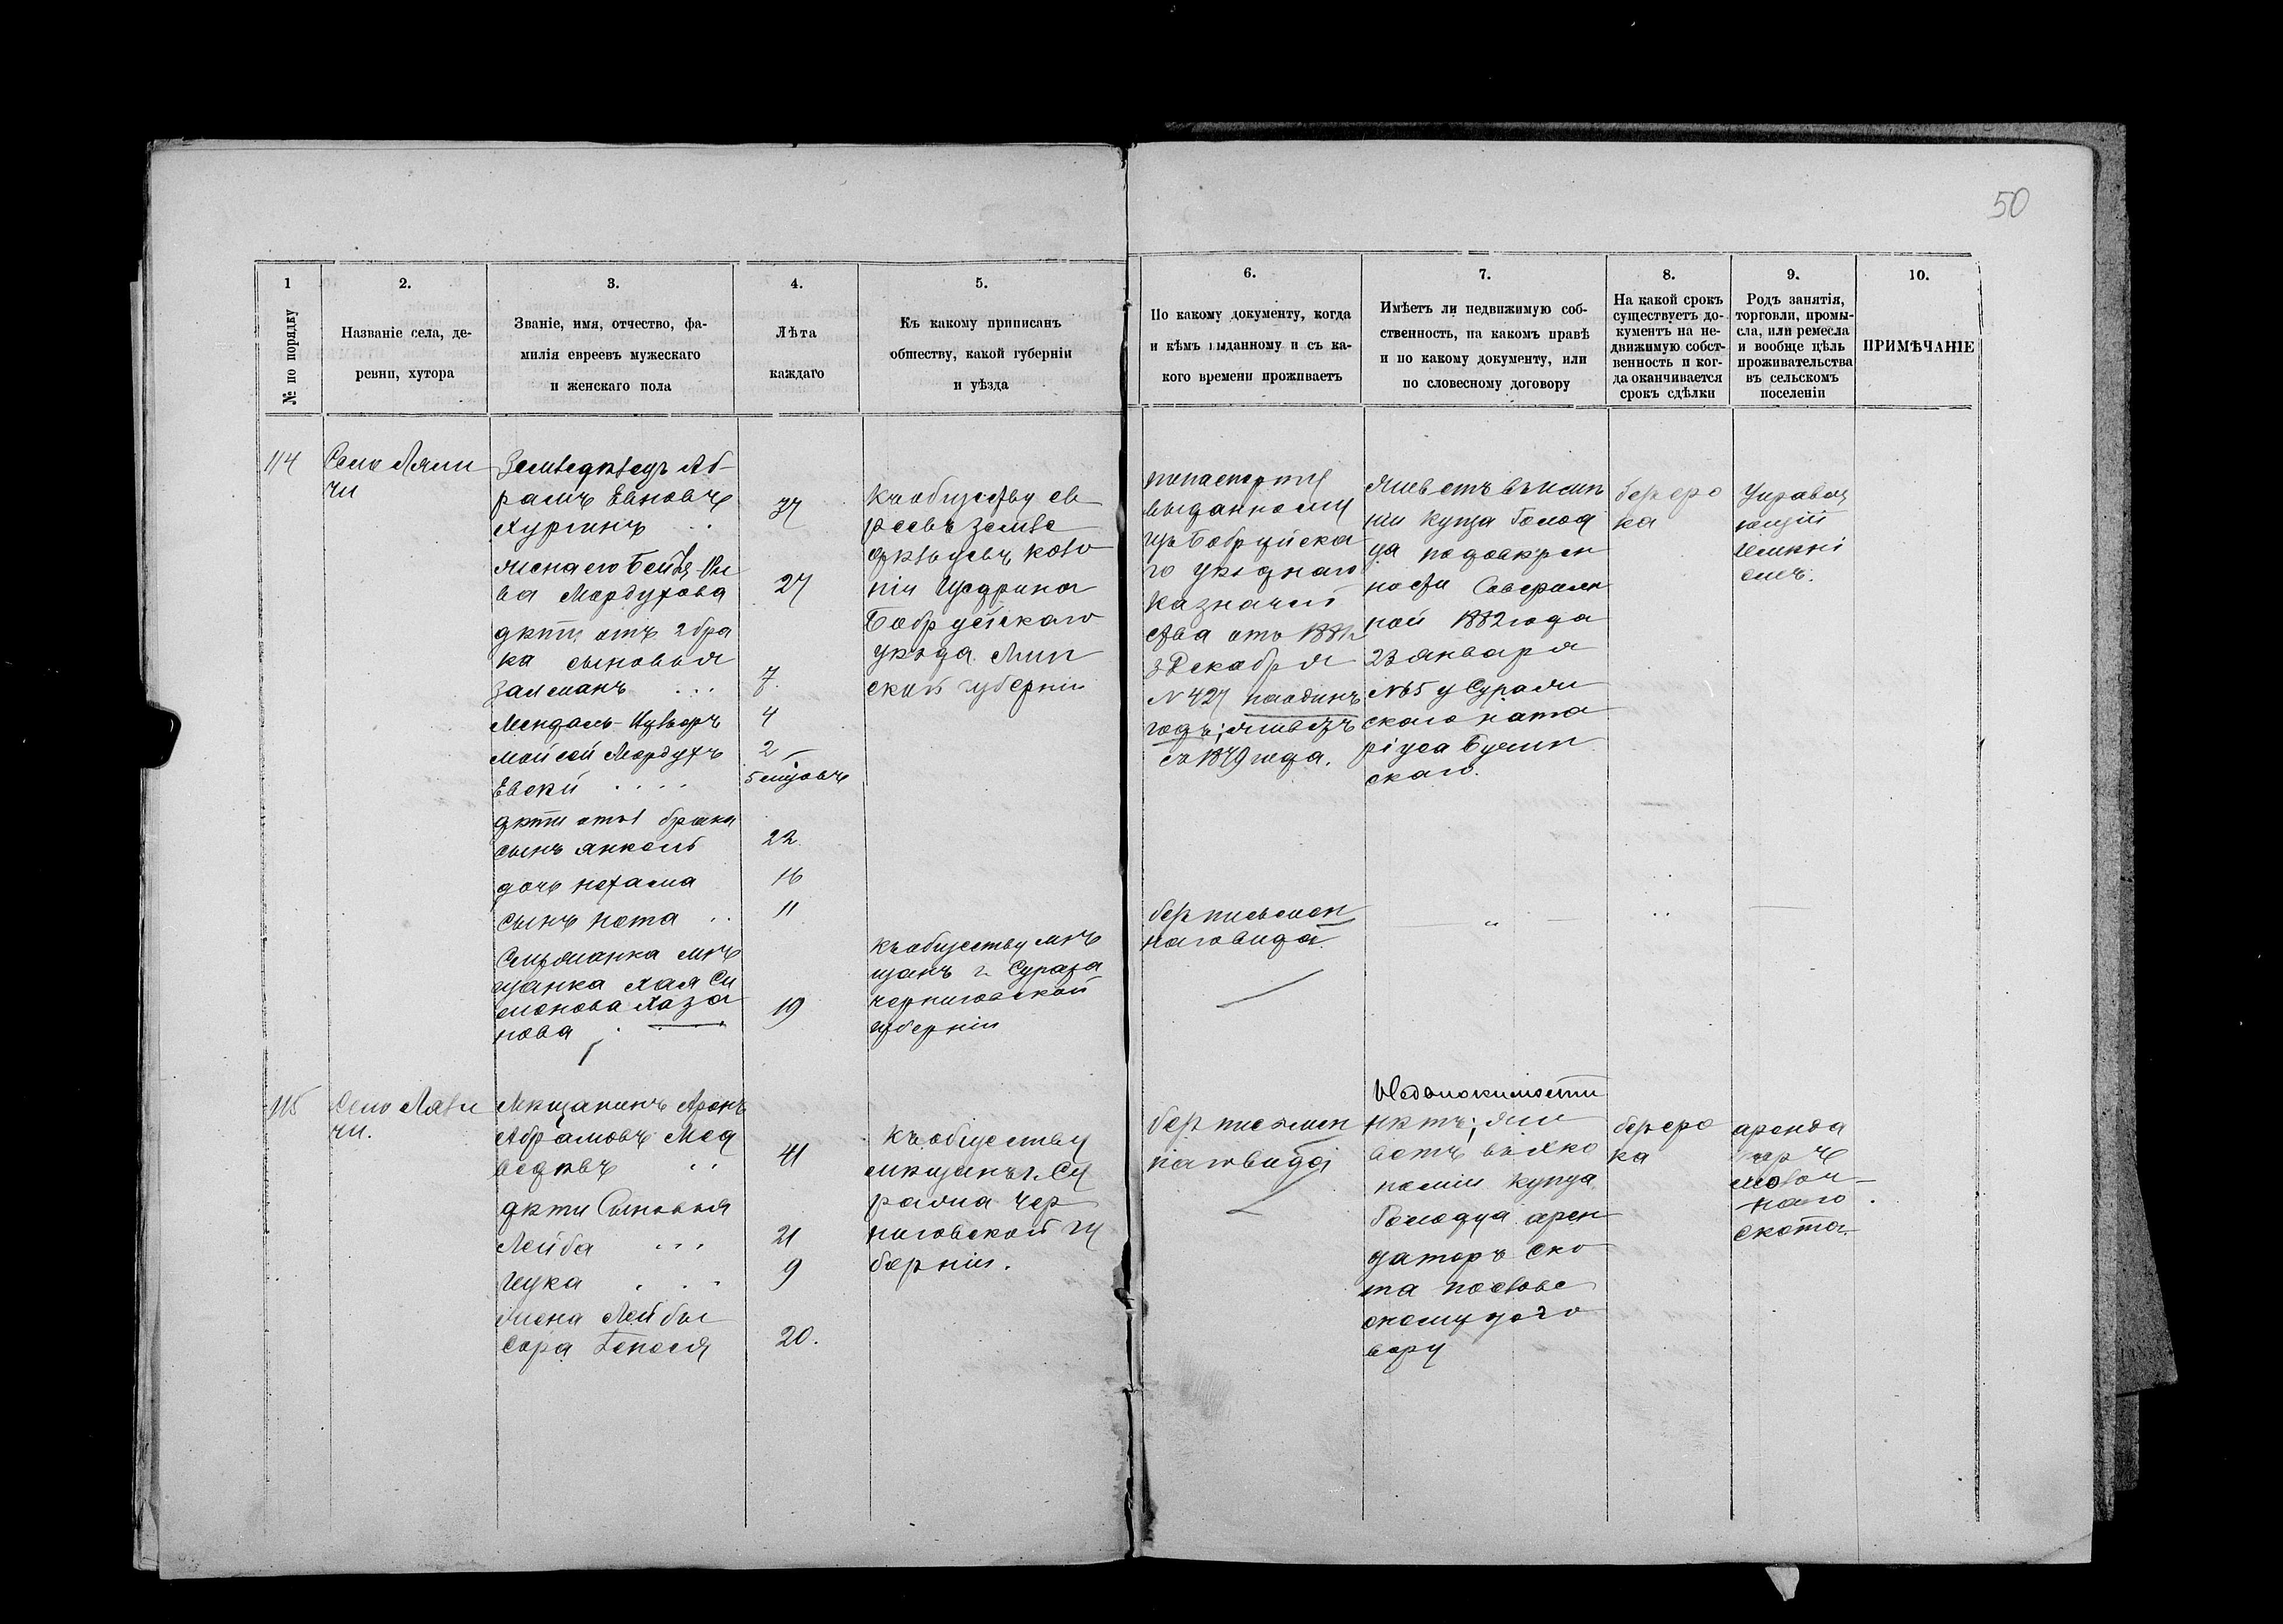 50
1
№ по порядку
2.
Названіе села, де-
ревни, хутора
3.
Званіе, имя, отчество, фа-
милія евреевъ мужескаго
и женскаго пола
4.
Лѣта
каждаго
5.
Къ какому приписанъ
обществу, какой губерніи
и уѣзда
6.
По какому документу, когда
и кѣмъ выданному и съ ка-
кого времени проживаетъ
7.
Имѣетъ ли недвижимую соб-
ственность, на какомъ правѣ
и по какому документу, или
по словесному договору
8.
На какой срокъ
существуетъ до-
кументъ на не-
движимую собст-
венность и ког-
да оканчивается
срокъ сдѣлки
9.
Родъ занятія,
торговли, промы-
сла, или ремесла
и вообще цѣль
проживательства
въ сельскомъ
поселеніи
10.
ПРИМѢЧАНІЕ
114
Село Ляли
чи
Земледѣлецъ Аб-
рамъ Евновъ
Хургинъ
37
жена его Бейля
ва Мордухова
27
дѣти отъ 2 бра
ка сыновья
Залманъ
7
Мендель-
4
Мойсей Мордухъ
2
5 мѣсяцовъ
дѣти отъ 1 брака
сынъ Янкель
22
дочь Нехама
16
сынъ Нота
11
Служанка мѣ
щанка Хая Си
монова Хаза
нова
19
Къ обществу ев
реевъ земле
дѣльцевъ коло
ніи Щедрина
Бобруйскаго
уѣзда Мин
ской губерніи
къ обществу мѣ
щанъ г. Суража
Черниговской
губерніи
по паспорту
выданному
изъ Бобруйска
го уѣзднаго
Казначей
ства отъ 1881 г
3 Декабря
N 427 на одинъ
годъ; живетъ
съ 1879 года.
без письмен
наго вида
Живетъ въ имѣ
ніи купца Голод
ца по довѣрен
ности Совершен
ной 1882 года
23 января
N 65 у Сураж
скаго нота
ріуса
скаго.
без сро
ка
Управля
ющій
имѣні
емъ.
115
Село Ляли
чи.
Мѣщанинъ Аронъ
Абрамовъ Мед
ведевъ
41
дѣти Сыновья
Лейба
21
9
жена Лейбы
Сора Генеся
20.
Къ обществу
мѣщанъ г. Су
ража Чер
ниговской гу
берніи.
без письмен
наго вида
Недвижимости
нѣтъ; жи
ветъ въ эко
номіи купца
Голодца арен
даторъ ско
та по слове
сному дого
вору
без сро
ка
аренда
торъ
молоч-
наго
скота